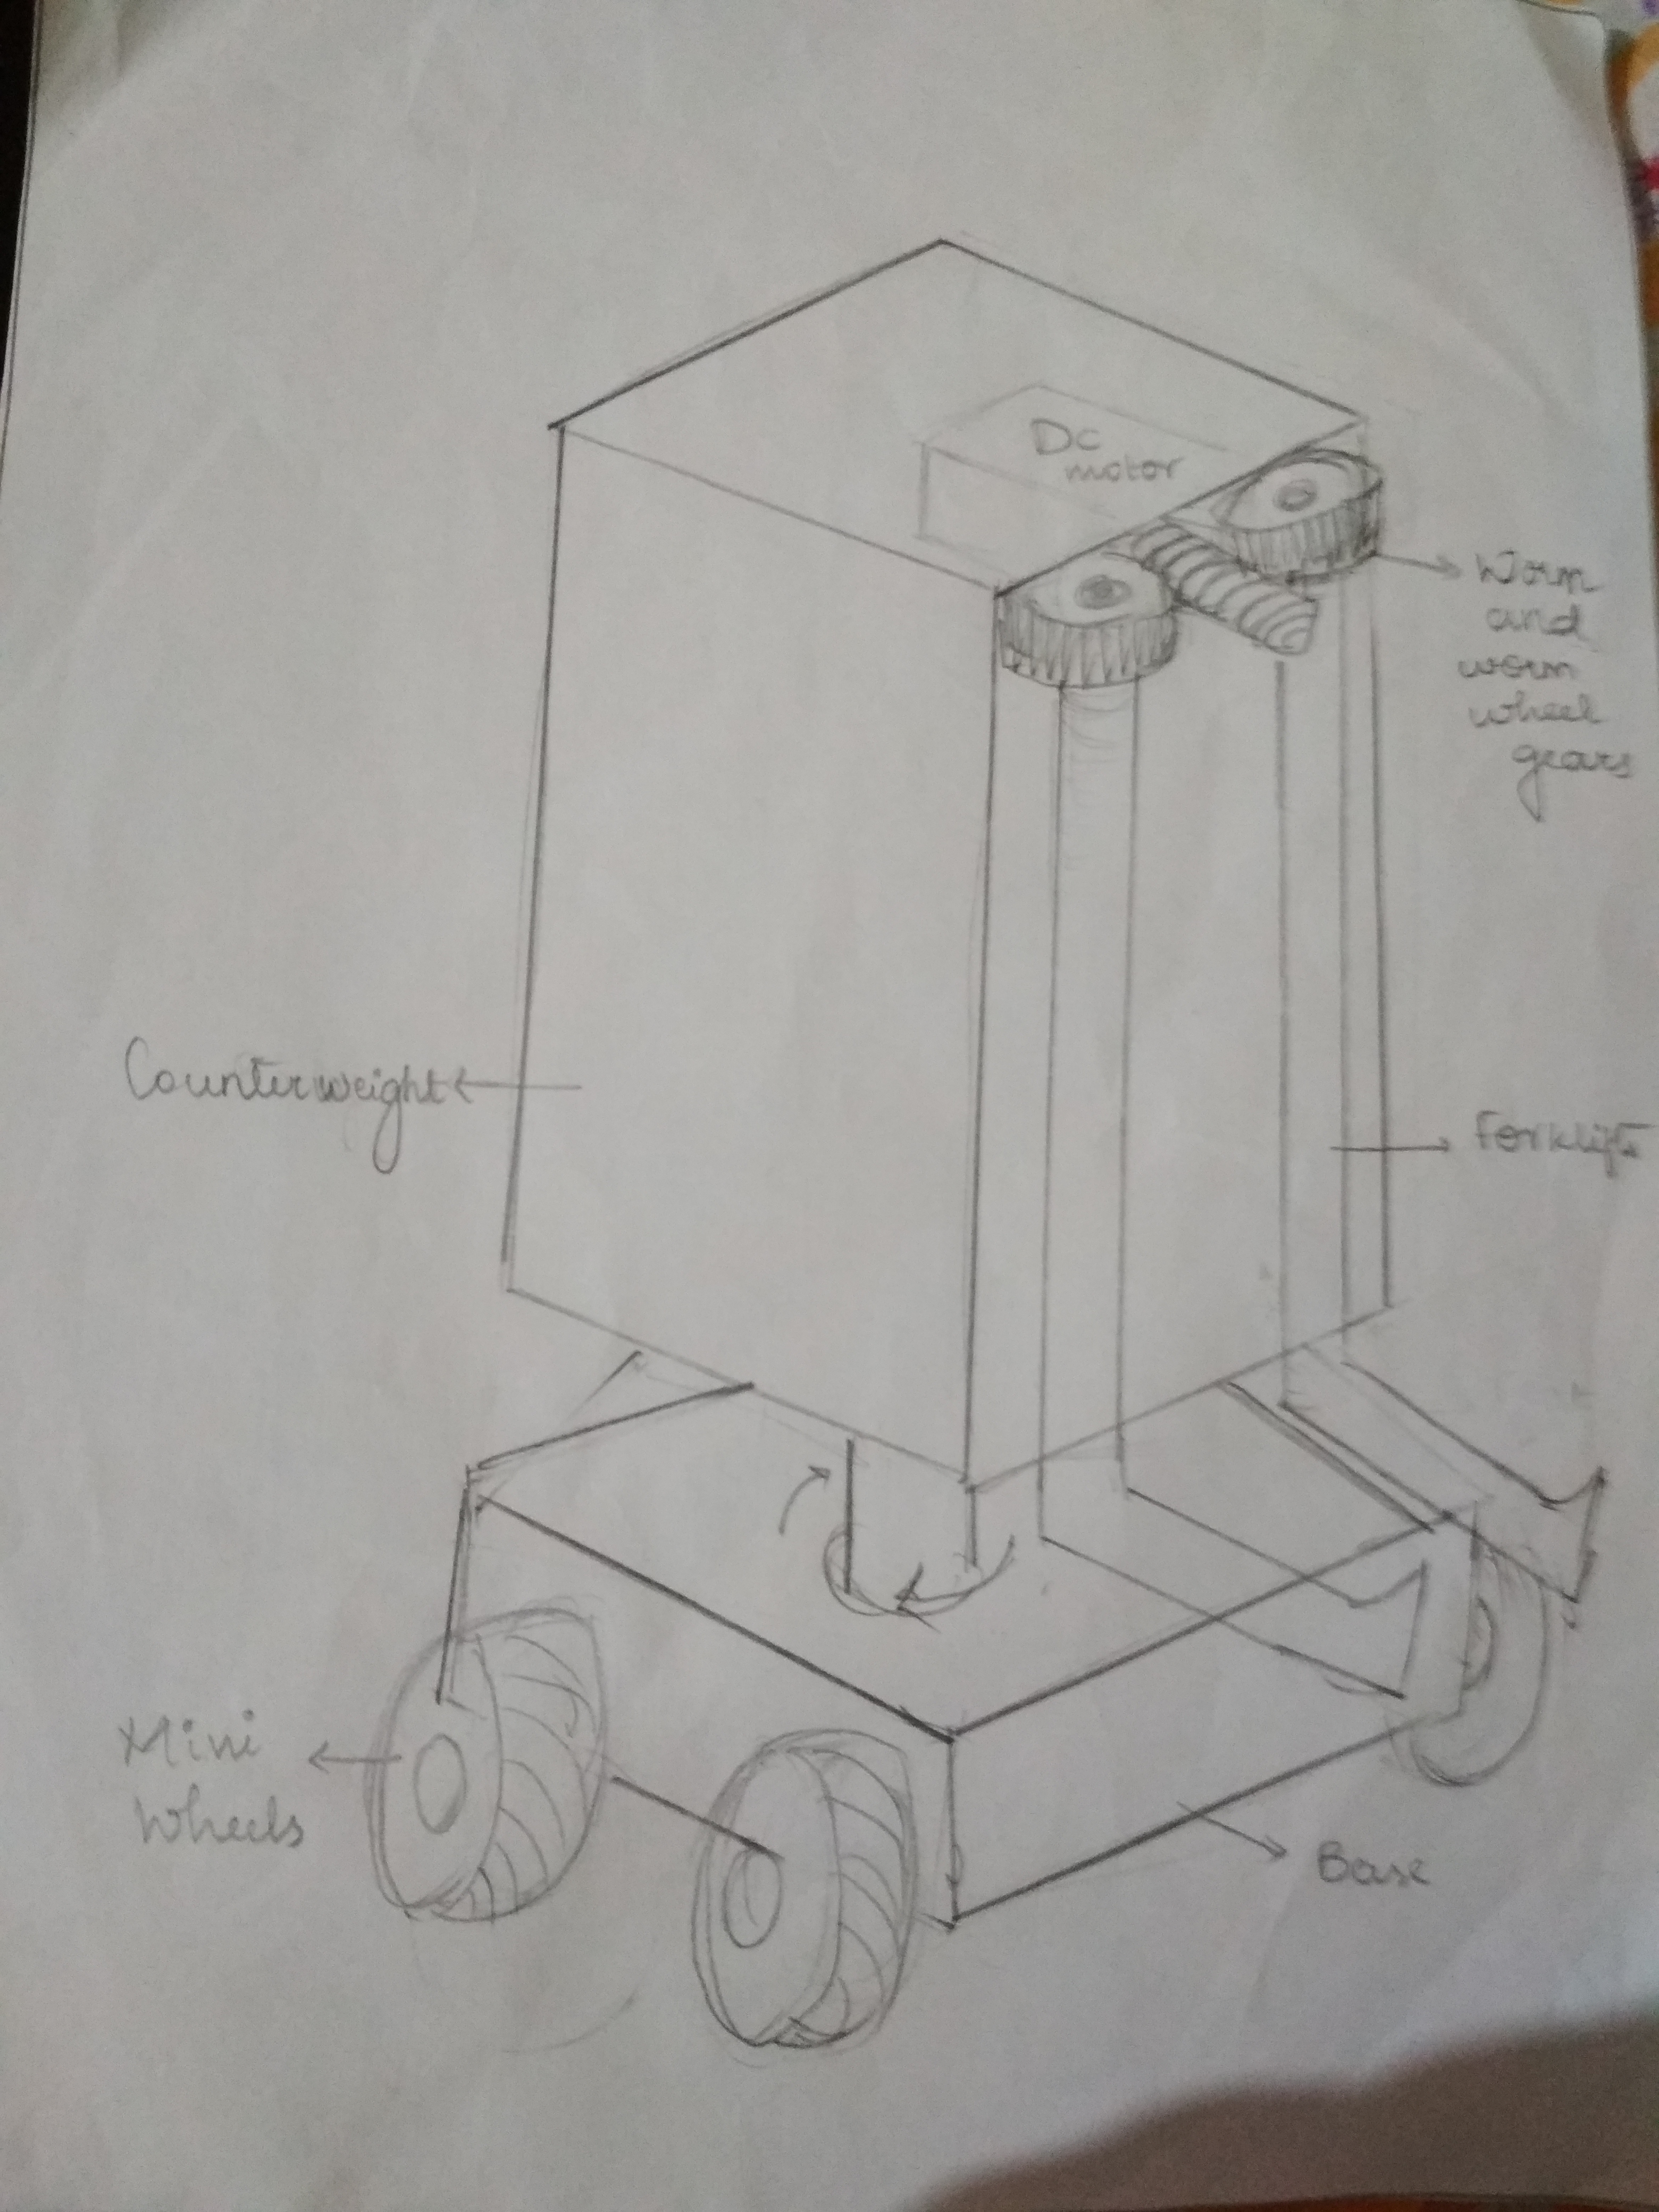 Dc
motor
Worm
and
worm
wheel
gears
Counterweight
Forklift
Mini
Wheels
Base